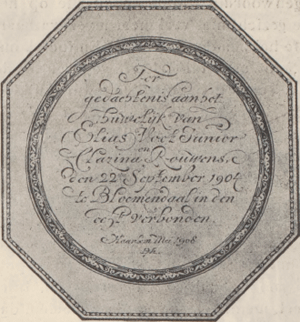 Ter
gedachtenis aan het
huwelijk van
Elias Voet Junior
en
Clazina Rouwens,
den 22 September 1904
te Bloemendaal in den
echt verbonden.
Mei 1908